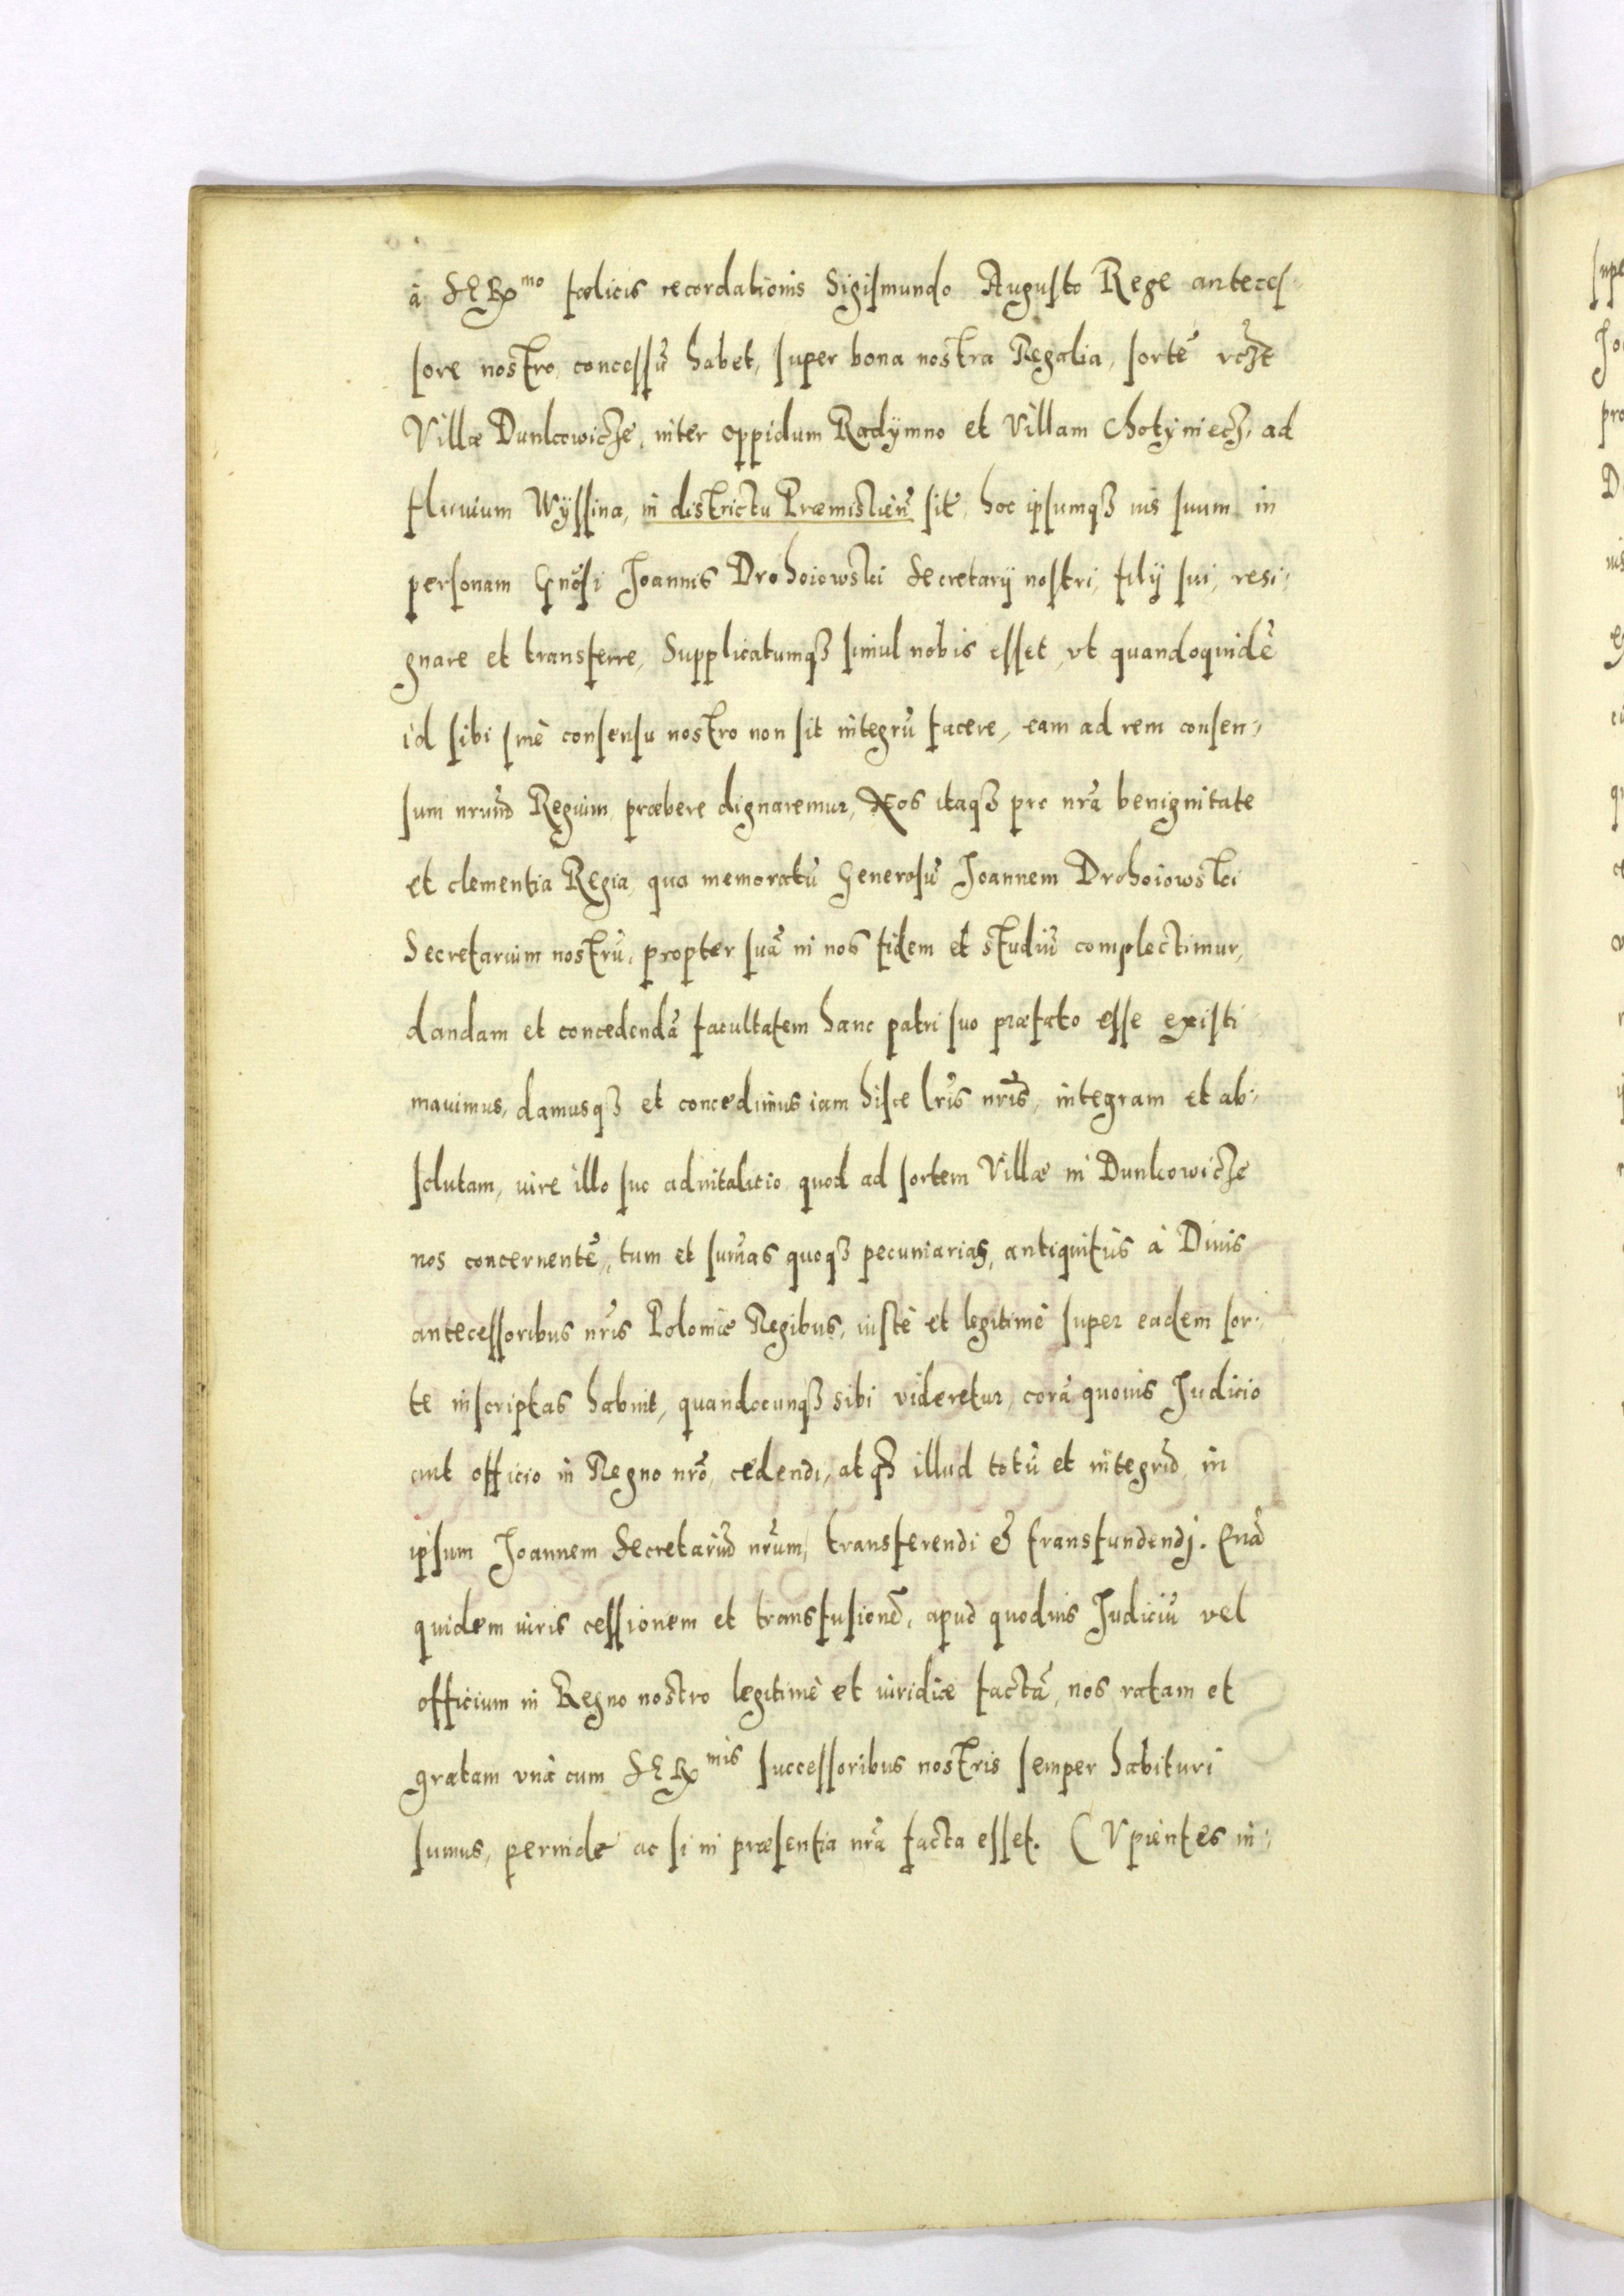 à SERmo fœlicis recordationis Sigismundo Augusto Rege anteces-
sore nostro concessũ habet, super bona nostra Regalia, sortẽ
Villæ Dunkowicze, inter oppidum Radÿmno et Villam Chotÿniecz, ad
fluuium Wÿssina, in districtu Præmislieñ sit, hoc ipsumqꝫ ius suum in
personam Gnõsi Joannis Drohoiowski Secretarÿ nostri, filÿ sui, resi-
gnare et transferre, Supplicatumqꝫ simul nobis esset, vt quandoquidẽ
id sibi sinè consensu nostro non sit integrũ facere, eam ad rem consen-
sum nrũm Regium præbere dignaremur, Nos itaqꝫ pro nrã benignitate
et clementia Regia, qua memoratũ Generosũ Joannem Drohoiowski
Secretarium nostrũ, propter suã in nos fidem et studiũ complectimur,
dandam et concedendã facultatem hanc patri suo præfato esse existi-
mauimus, damusqꝫ et concedimus iam hisce lrĩs nrĩs, integram et ab-
solutam, iure illo suo aduitalitio quod ad sortem Villæ in Dunkowicze
nos concernentẽ, tum et sum̃as quoqꝫ pecuniarias, antiquitùs à Diuis
antecessoribus nrĩs Poloniæ Regibus, iustè et legitimè super eadem sor-
te inscriptas habuit, quandocunqꝫ sibi videretur, corã quouis Judicio
aut officio in Regno nrõ, cedendi, atqꝫ illud totũ et integrũ in
ipsum Joannem Secretariũ nrũm, transferendi & transfundendj.
quidem iuris cessionem et transfusionẽ, apud quoduis Judiciũ vel
officium in Regno nostro legitimè et iuridicè factã, nos ratam et
gratam vnà cum SERmis successoribus nostris semper habituri
sumus, perinde ac si in præsentia nrã facta esset. CVpientes in-